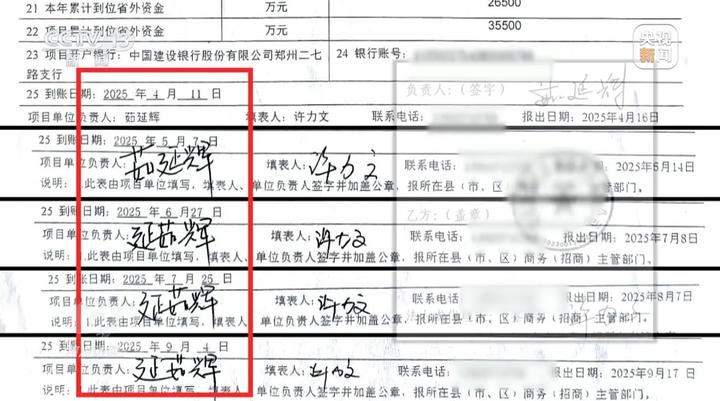 21 本年累计到位省外资金 万元 26500
22 项目累计到位省外资金 万元 35500
CCTV-13
新闻
央视
新闻
23 项目开户银行：中国建设银行股份有限公司郑州二七路支行 24 银行账号：
25 到账日期：2025 年 4 月 11 日
负责人：（签字） 茹延辉
项目单位负责人：茹延辉 填表人：许力文 联系电话： 报出日期：2025年4月16日
25 到账日期：2025 年 5 月 7 日
项目单位负责人：茹延辉 填表人：许力文 联系电话： 报出日期：2025年5月14日
说明：1.此表由项目单位填写，填表人、单位负责人签字并加盖公章，报所在县（市、区）商务（招商）主管部门。
25 到账日期：2025 年 6 月 27 日
乙方：（盖章）
项目单位负责人：延茹辉 填表人：许力文 联系电话： 报出日期：2025年7月8日
说明：1.此表由项目单位填写，填表人、单位负责人签字并加盖公章，报所在县（市、区）商务（招商）主管部门。
25 到账日期：2025 年 7 月 25 日
项目单位负责人：延茹辉 填表人：许力文 联系电话： 报出日期：2025年8月7日
说明：1.此表由项目单位填写，填表人、单位负责人签字并加盖公章，报所在县（市、区）商务（招商）主管部门。
25 到账日期：2025 年 9 月 4 日
项目单位负责人：延茹辉 填表人：许力文 联系电话： 报出日期：2025年9月17日
说明：1.此表由项目单位填写，填表人、单位负责人签字并加盖公章，报所在县（市、区）商务（招商）主管部门。